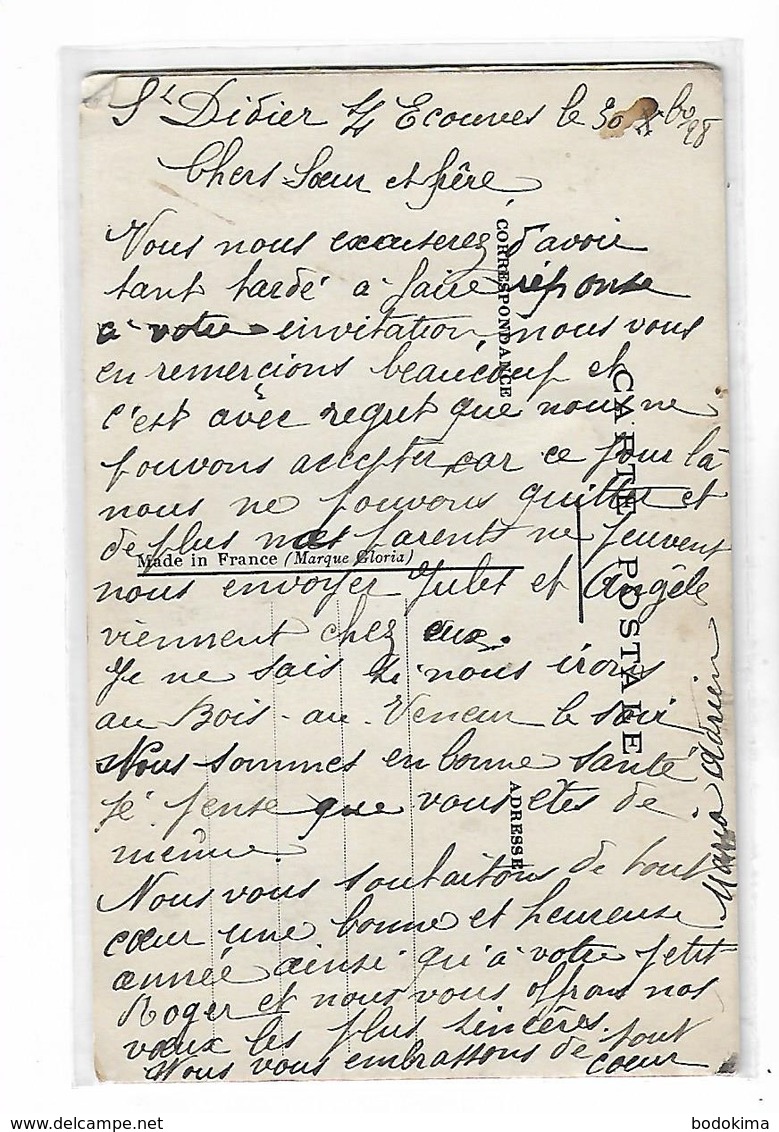 St Didier s/s Ecouves le 30 Xbre 28
Chers Sœur et frère
Vous nous excuserez d'avoir
tant tardé à faire réponse
à votre invitation, nous vous
en remercions beaucoup et
c'est avec regret que nous ne
pouvons accepter car ce jour là
nous ne pouvons quitter et
de plus mes parents ne peuvent
nous envoyer Jules et Angèle
viennent chez eux.
Je ne sais si nous irons
au Bois-au-Veneur le soir
Nous sommes en bonne santé
je pense que vous êtes de
même.
Nous vous souhaitons de tout
cœur une bonne et heureuse
année ainsi qu'à votre petit
Roger et nous vous offrons nos
vœux les plus sincères.
Nous vous embrassons de tout
cœur
Maria Adrien
CORRESPONDANCE
CARTE POSTALE
ADRESSE
Made in France (Marque Gloria)
bodokima